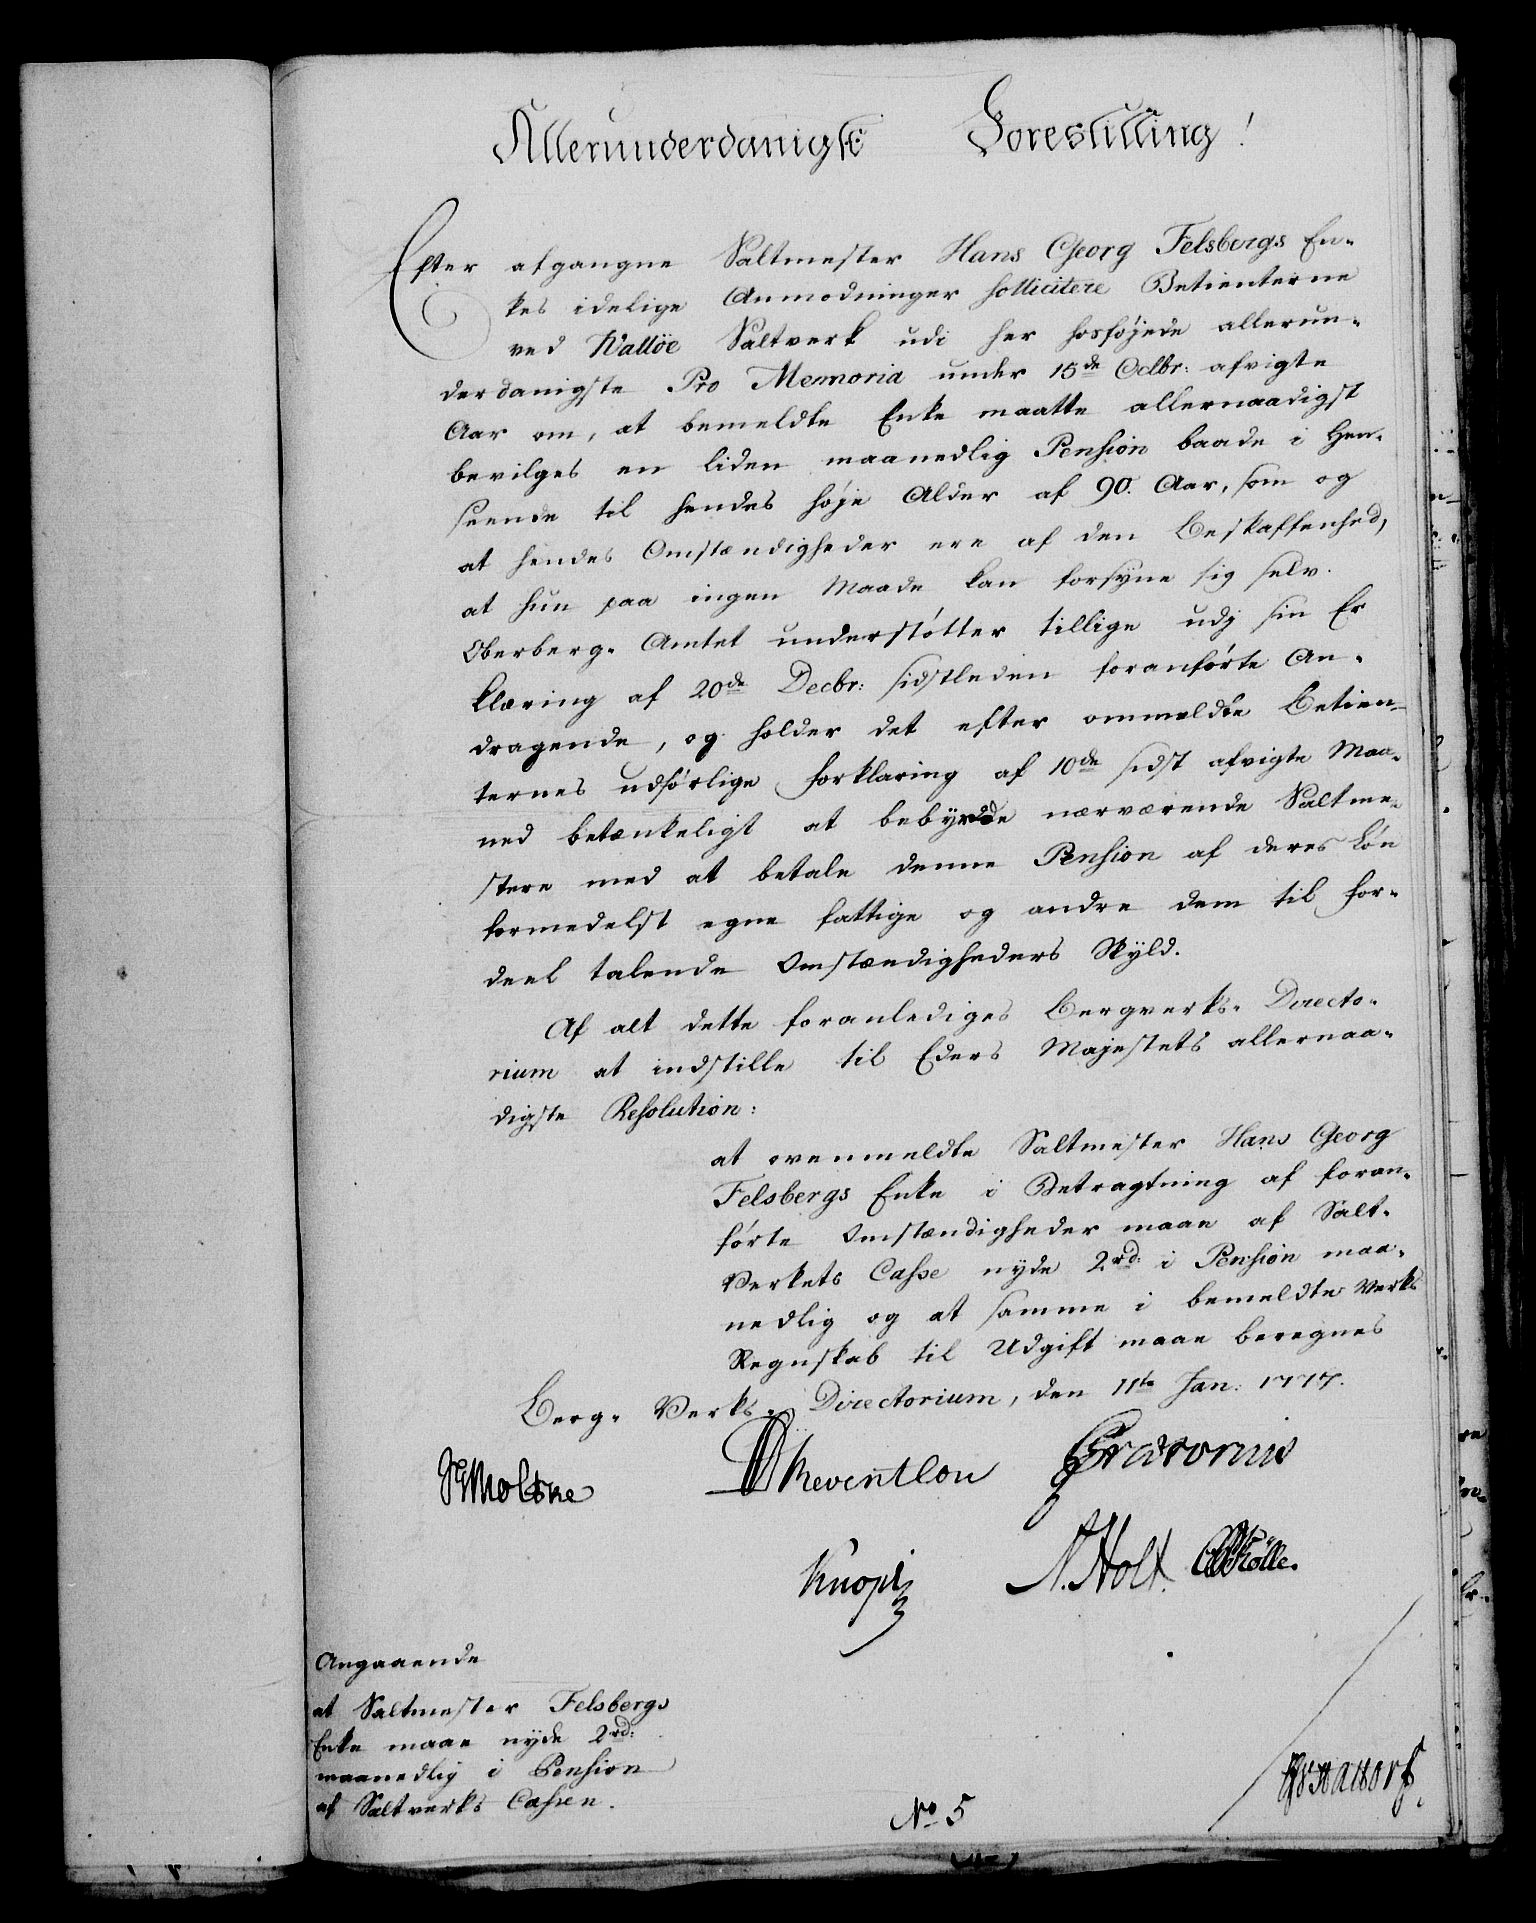 Allerunderdanigste Forestilling!
Efter afgangne Saltmester Hans Georg Felsbergs En-
kes idelige Anmodninger sollicitere Betienterne
ved Walløe Saltverk udi her hosføjede allerun-
derdanigste Pro Memoria under 15de Octbr: afvigte
Aar om, at bemeldte Enke maatte allernaadigst
bevilges en liden maanedlig Pension baade i Hen-
seende til hendes høje Alder af 90. Aar, som og
at hendes Omstændigheder ere af den Beskaffenhed,
at hun paa ingen Maade kan forsyne sig selv.
Oberberg-Amtet understøtter tillige udj sin Er
klæring af 20de Decbr: sidstleden foranførte An-
dragende, og holder det efter ommeldte Betien-
ternes udførlige Forklaring af 10de sidst afvigte Maa-
ned betænkeligt at bebyrde nærværende Saltme-
stere med at betale denne Pension af deres Løn
formedelst egne fattige og andre dem til For-
deel talende Omstændigheders Skyld.
Af alt dette foranlediges Bergverks-Directo-
rium at indstille til Eders Majestets allernaa-
digste Resolution:
at ovenmeldte Saltmester Hans Georg
Felsbergs Enke i Betragtning af foran-
førte Omstændigheder maae af Salt-
Verkets Casse nyde 2rd: i Pension maa-
nedlig og at samme i bemeldte Verks
Regnskab til Udgift maae beregnes
Berg-Verks-Directorium, den 11te Jan: 1777.
Moltke DReventlou
Knopf N. Holt.
Angaaende
at Saltmester Felsbergs
Enke maae nyde 2rd:
maanedlig i Pension
af Saltverks Cassen.
No 5